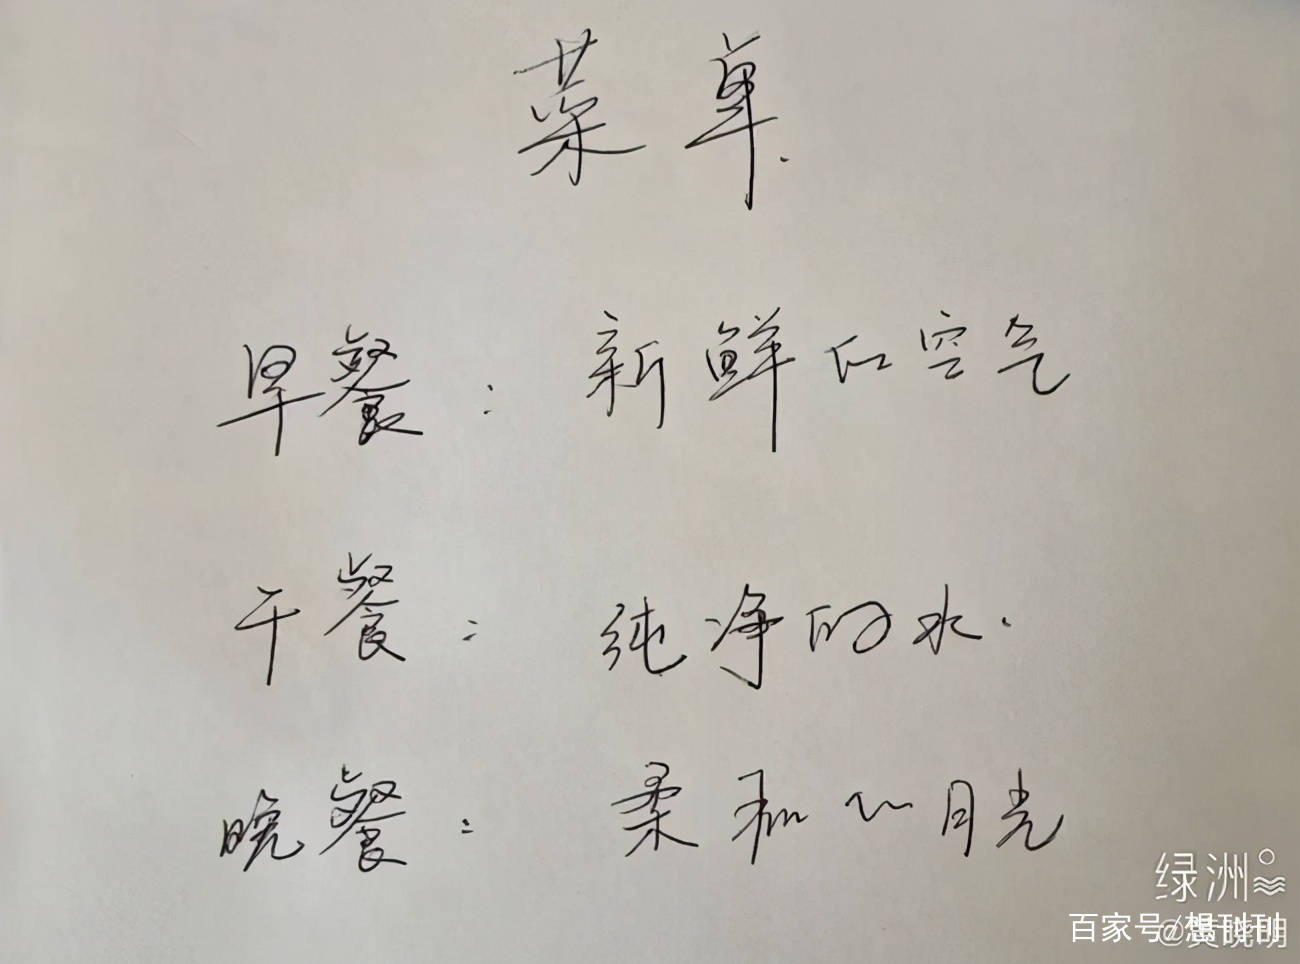 菜单.
早餐：新鲜的空气
干餐：纯净的水.
晚餐：柔和的月光
绿洲
百家号/想刊刊